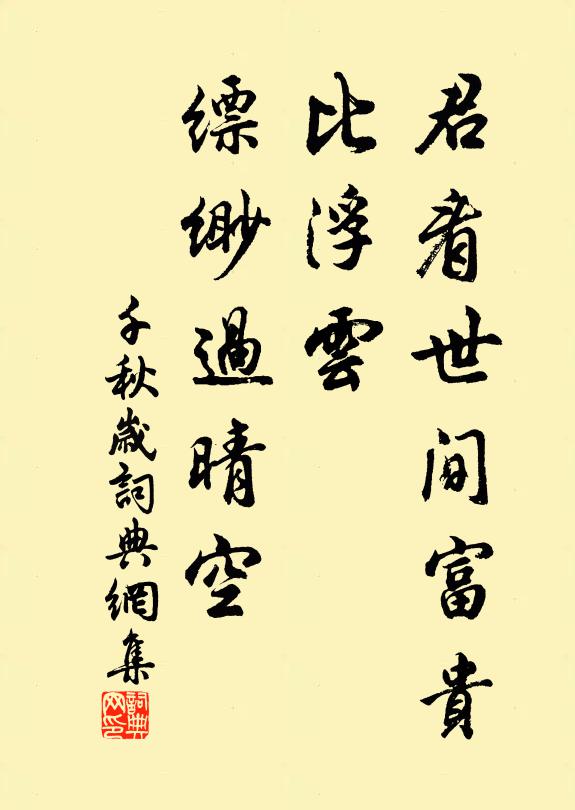 君看世间富貴
比浮雲
縹緲過晴空
千秋歲詞典網集
詞典
网印